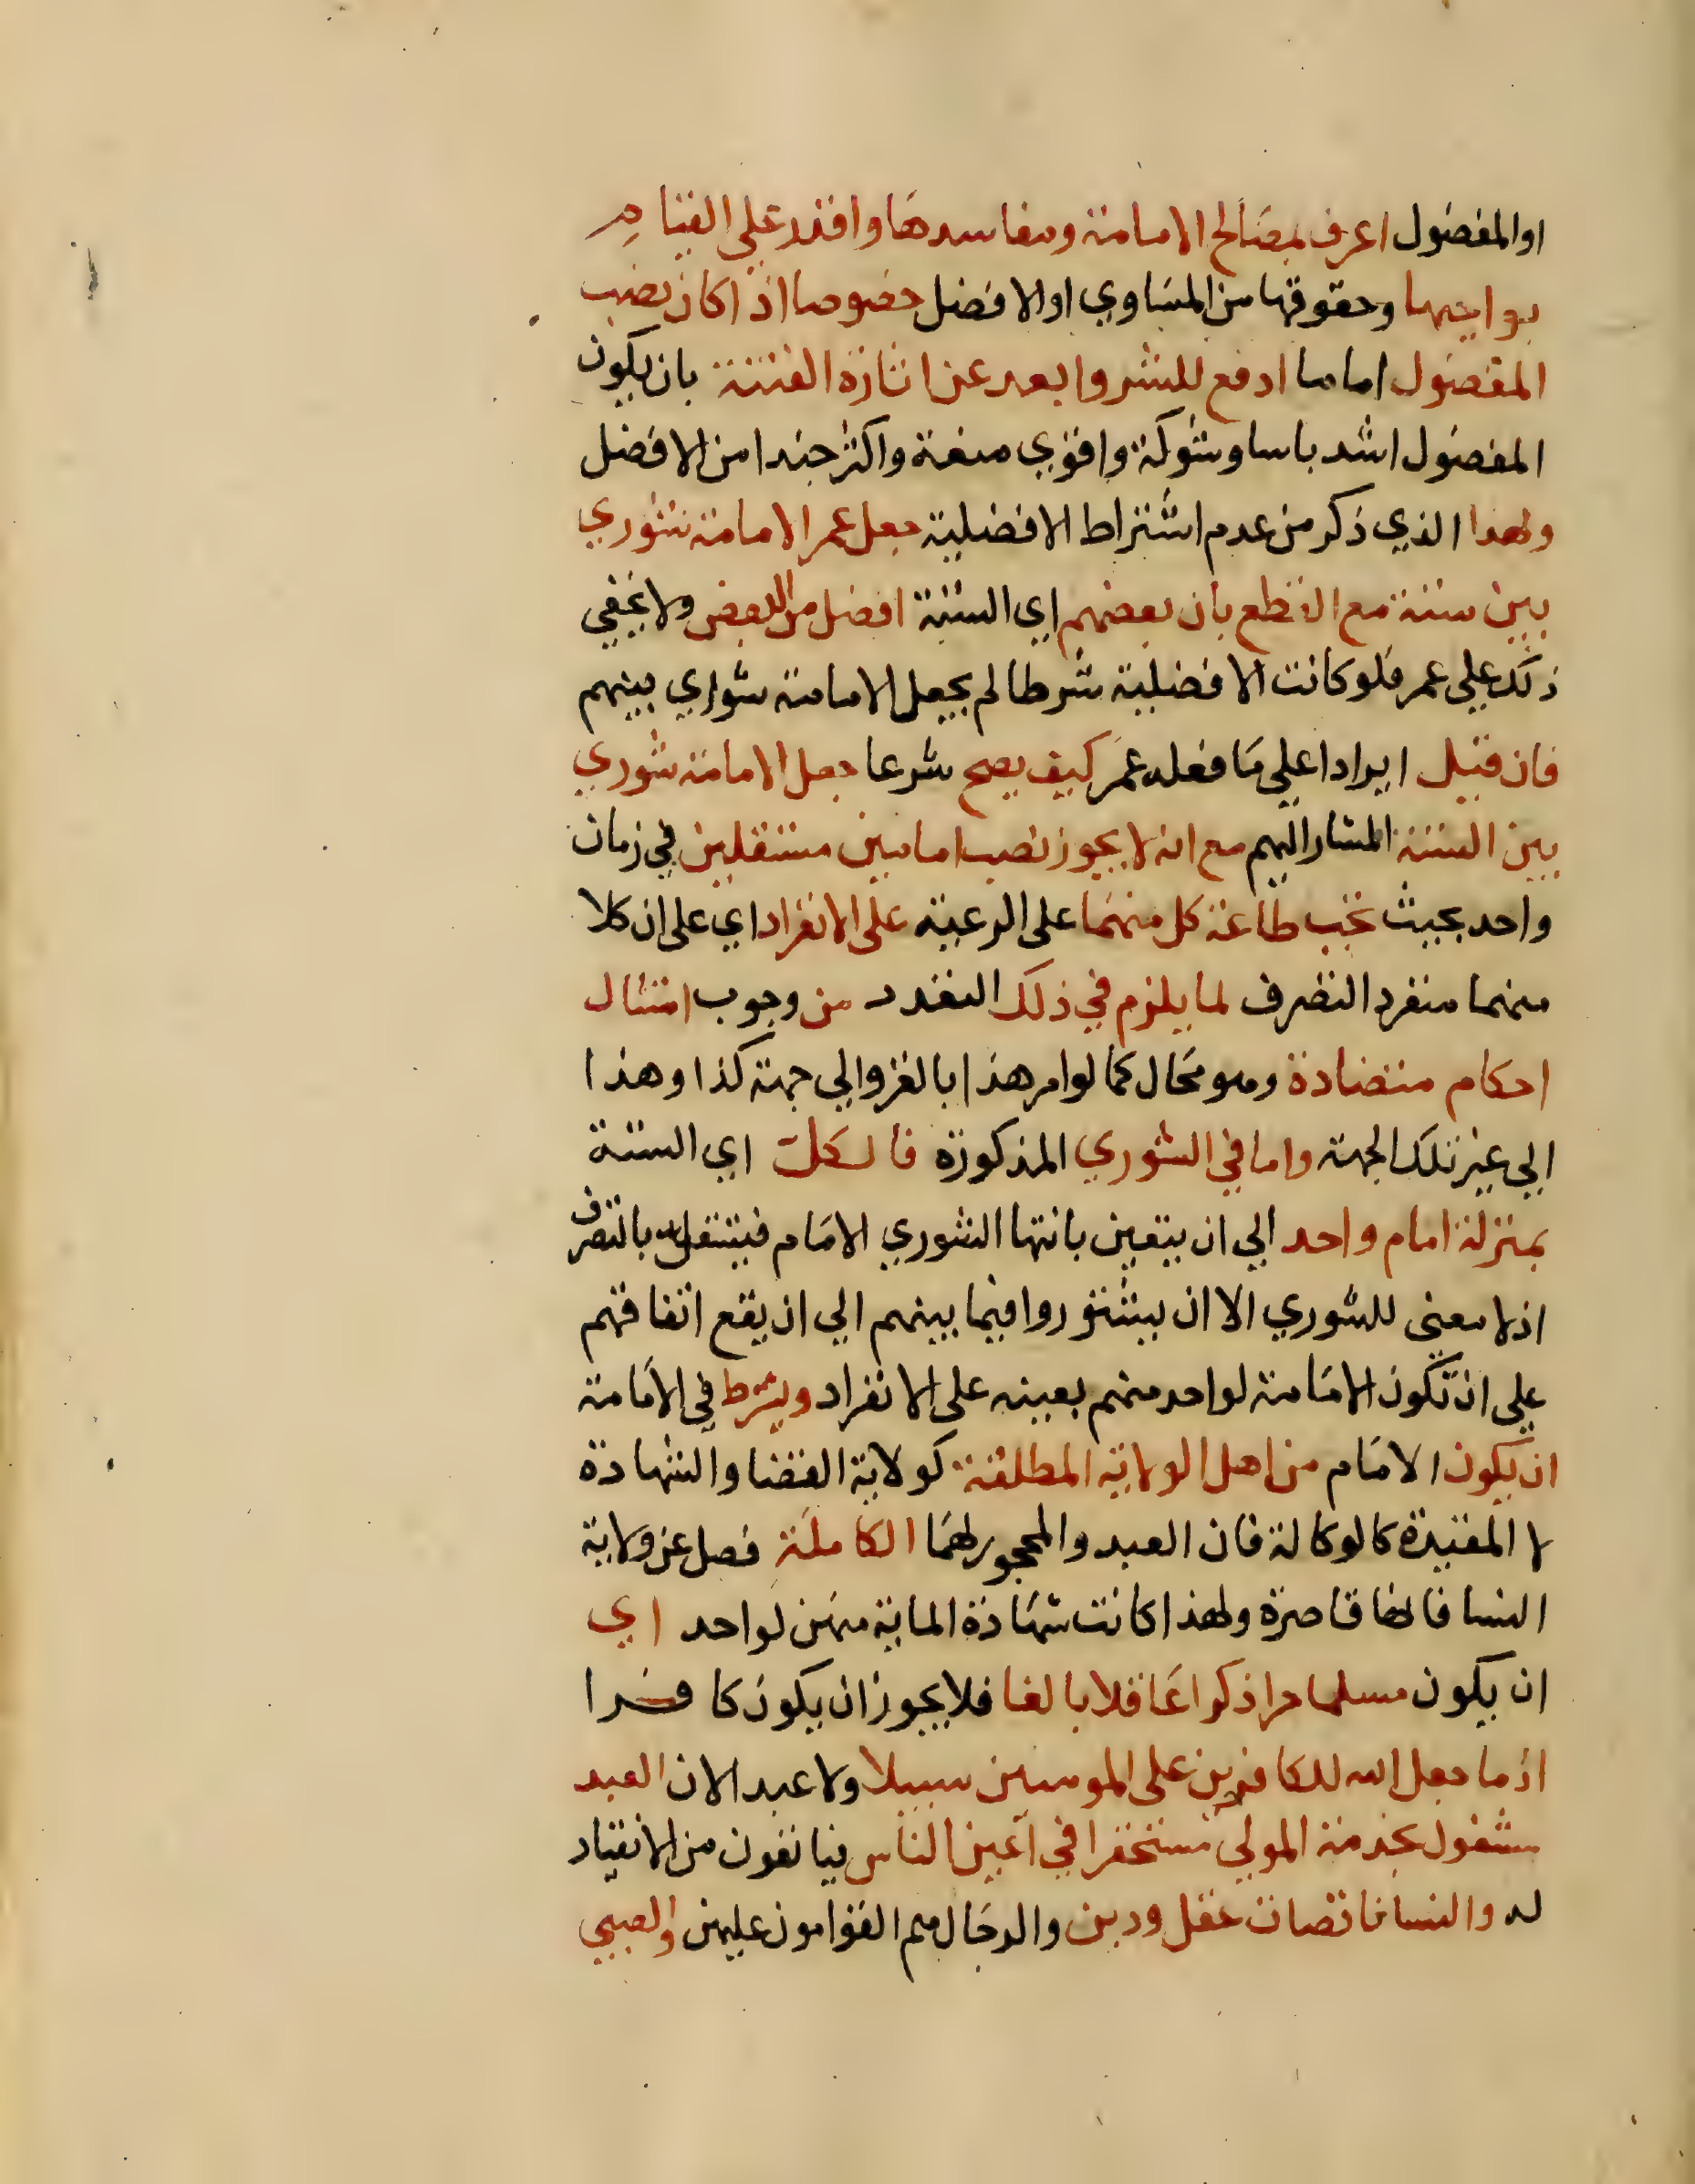 او المفضول اعرف بمصالح الامامة ومفاسدها واقدر على القيام
بواجبها وحقوقها من المساوي او الافضل خصوصا اذا كان نصب
المفضول اماما ادفع للشر وابعد عن اثارة الفتنة بان يكون
المفضول اشد باسا وشوكة واقوي منعة واكثر جندا من الافضل
ولهذا الذي ذكر من عدم اشتراط الافضلية جعل عمر الامامة شوري
بين ستة مع القطع بان بعضهم اي الستة افضل من البعض ولا يخفي
ذلك علي عمر فلو كانت الافضلية شرطا لم يجعل الامامة شوري بينهم
فان قيل ايرادا علي ما فعله عمر كيف يصح شرعا جعل الامامة شوري
بين الستة المشار اليهم مع انه لا يجوز نصب امامين مستقلين في زمان
واحد بحيث تجب طاعة كل منهما على الرعية على الانفراد اي على ان كلا
منهما منفرد التصرف لما يلزم في ذلك التعدد من وجوب امتثال
احكام متضادة وهو محال كما لو امر هذا بالغزو الي جهة كذا وهذا
الي غير تلك الجهة واما في الشوري المذكورة فالكل اي الستة
بمنزلة امام واحد الي ان يتعين بانتها الشوري الامام فيستقل بالتصرف
اذ لا معنى للشوري الا ان يتشوروا فيما بينهم الي ان يقع اتفاقهم
علي ان تكون الامامة لواحد منهم بعينه على الانفراد ويشترط في الامامة
ان يكون الامام من اهل الولاية المطلقة كولاية القضا والشهادة
لا المقيدة كالوكالة فان العبد والمحجور لهما الكاملة فصل عن ولاية
النسا فانها قاصرة ولهذا كانت شهادة الماية منهن لواحد اي
ان يكون مسلما حرا ذكرا عاقلا بالغا فلا يجوز ان يكون كافرا
اذ ما جعل الله للكافرين على المومنين سبيلا ولا عبد الان العبد
مشغول بخدمة المولي مستحقرا في اعين الناس فيانفون من الانقياد
له والنسا ناقصات عقل ودين والرجال هم القوامون عليهن والصبي